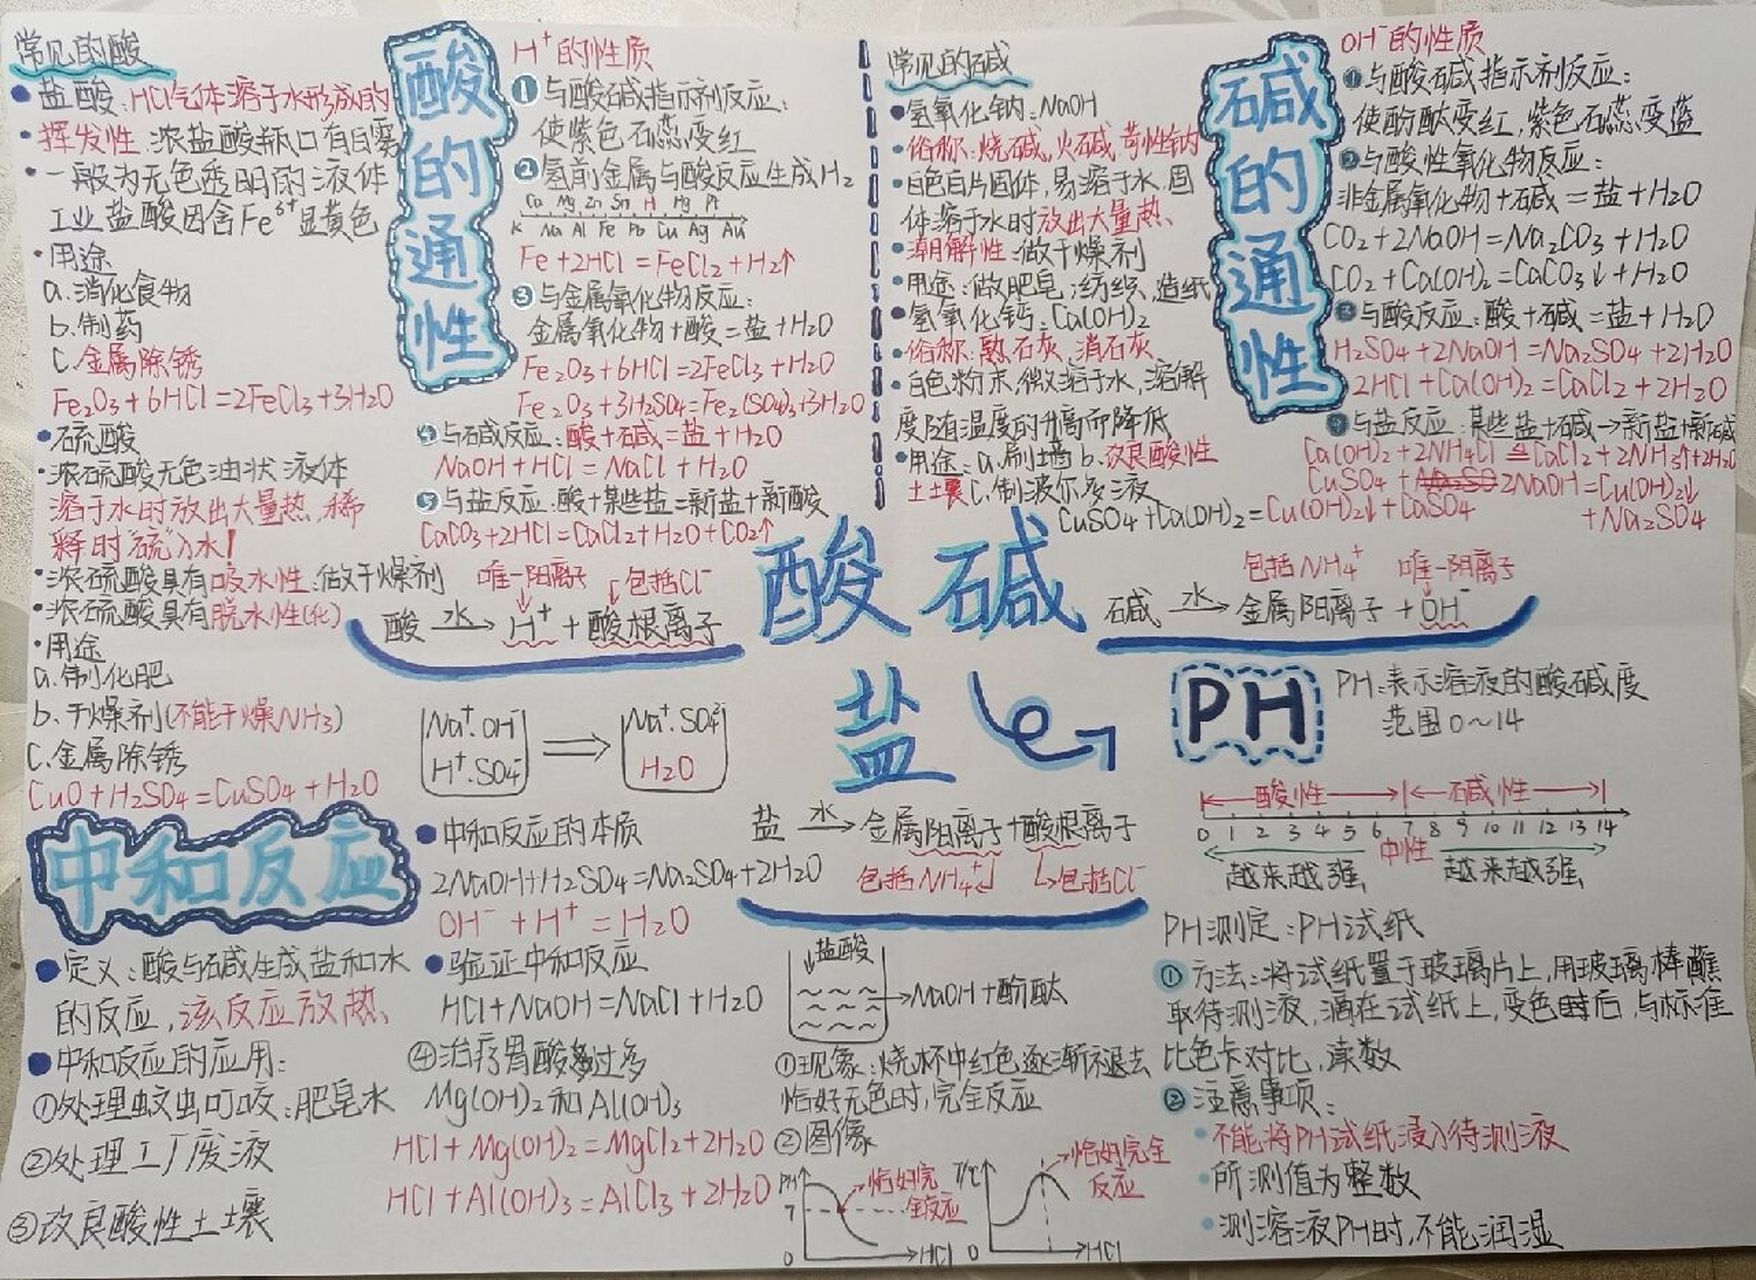 常见的酸
盐酸:HCl气体溶于水形成的
挥发性:浓盐酸瓶口有白雾
一般为无色透明的液体
工业盐酸因含Fe³⁺显黄色
用途
a.消化食物
b.制药
C.金属除锈
Fe₂O₃+6HCl=2FeCl₃+3H₂O
硫酸
浓硫酸无色油状液体
溶于水时放出大量热,稀
释时“硫”入水!
浓硫酸具有吸水性:做干燥剂
浓硫酸具有脱水性(化)
用途
a.制化肥
b.干燥剂(不能干燥NH₃)
C.金属除锈
CuO+H₂SO₄=CuSO₄+H₂O
酸的通性
H⁺的性质
①与酸碱指示剂反应:
使紫色石蕊变红
②氢前金属与酸反应生成H₂
Ca Mg Zn Sn H Hg Pt
K Na Al Fe Pb Cu Ag Au
Fe+2HCl=FeCl₂+H₂↑
③与金属氧化物反应:
金属氧化物+酸=盐+H₂O
Fe₂O₃+6HCl=2FeCl₃+H₂O
Fe₂O₃+3H₂SO₄=Fe₂(SO₄)₃+3H₂O
④与碱反应:酸+碱=盐+H₂O
NaOH+HCl=NaCl+H₂O
⑤与盐反应:酸+某些盐=新盐+新酸
CaCO₃+2HCl=CaCl₂+H₂O+CO₂↑
唯一阳离子 包括Cl⁻
酸 水→ H⁺+酸根离子
常见的碱
氢氧化钠:NaOH
俗称:烧碱、火碱、苛性钠
白色片固体,易溶于水,固
体溶于水时放出大量热、
潮解性:做干燥剂
用途:做肥皂,纺织,造纸
氢氧化钙:Ca(OH)₂
俗称:熟石灰,消石灰
白色粉末,微溶于水,溶解
度随温度的升高而降低
用途:a.刷墙 b.改良酸性
土土壤 C.制波尔多液
CuSO₄+Ca(OH)₂=Cu(OH)₂↓+CaSO₄
碱的通性
OH⁻的性质
①与酸碱指示剂反应:
使酚酞变红,紫色石蕊变蓝
②与酸性氧化物反应:
非金属氧化物+碱=盐+H₂O
CO₂+2NaOH=Na₂CO₃+H₂O
CO₂+Ca(OH)₂=CaCO₃↓+H₂O
③与酸反应:酸+碱=盐+H₂O
H₂SO₄+2NaOH=Na₂SO₄+2H₂O
2HCl+Ca(OH)₂=CaCl₂+2H₂O
④与盐反应:某些盐+碱→新盐+新碱
Ca(OH)₂+2NH₄Cl≜CaCl₂+2NH₃↑+2H₂O
CuSO₄+2NaOH=Cu(OH)₂↓
+Na₂SO₄
包括NH₄⁺ 唯一阴离子
碱 水→ 金属阳离子+OH⁻
酸碱
盐
Na⁺.OH⁻
H⁺.SO₄²⁻
Na⁺.SO₄²⁻
H₂O
盐 水→ 金属阳离子+酸根离子
包括NH₄⁺ 包括Cl⁻
PH
PH:表示溶液的酸碱度
范围0~14
酸性 碱性
0 1 2 3 4 5 6 7 8 9 10 11 12 13 14
越来越强 中性 越来越强
PH测定:PH试纸
①方法:将试纸置于玻璃片上,用玻璃棒蘸
取待测液,滴在试纸上,变色时后,与标准
比色卡对比,读数
②注意事项:
不能将PH试纸浸入待测液
所测值为整数
测溶液PH时,不能润湿
中和反应
定义:酸与碱生成盐和水
的反应,该反应放热、
中和反应的应用:
①处理蚊虫叮咬:肥皂水
②处理工厂废液
③改良酸性土壤
中和反应的本质
2NaOH+H₂SO₄=Na₂SO₄+2H₂O
OH⁻+H⁺=H₂O
验证中和反应
HCl+NaOH=NaCl+H₂O
④治疗胃酸过多
Mg(OH)₂和Al(OH)₃
HCl+Mg(OH)₂=MgCl₂+2H₂O
HCl+Al(OH)₃=AlCl₃+2H₂O
盐酸
NaOH+酚酞
①现象:烧杯中红色逐渐褪去
恰好无色时,完全反应
②图像
PH
7
0
HCl
恰好完
全反应
T/℃
0
HCl
恰好完全
反应